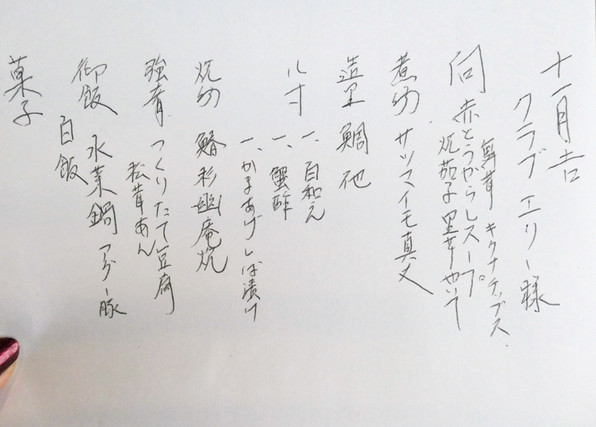 十一月吉
クラブ エリー様
舞茸 キクナチップス
向 赤とうがらしスープ
焼茄子 里芋
煮物 サツマイモ真丈
造里 鯛 他
八寸 一、白和え
一、蟹酢
一、かまあげしば漬け
焼物 鰆杉幽庵焼
強肴 つくりたて豆腐
松茸あん
御飯 水菜鍋
白飯
菓子